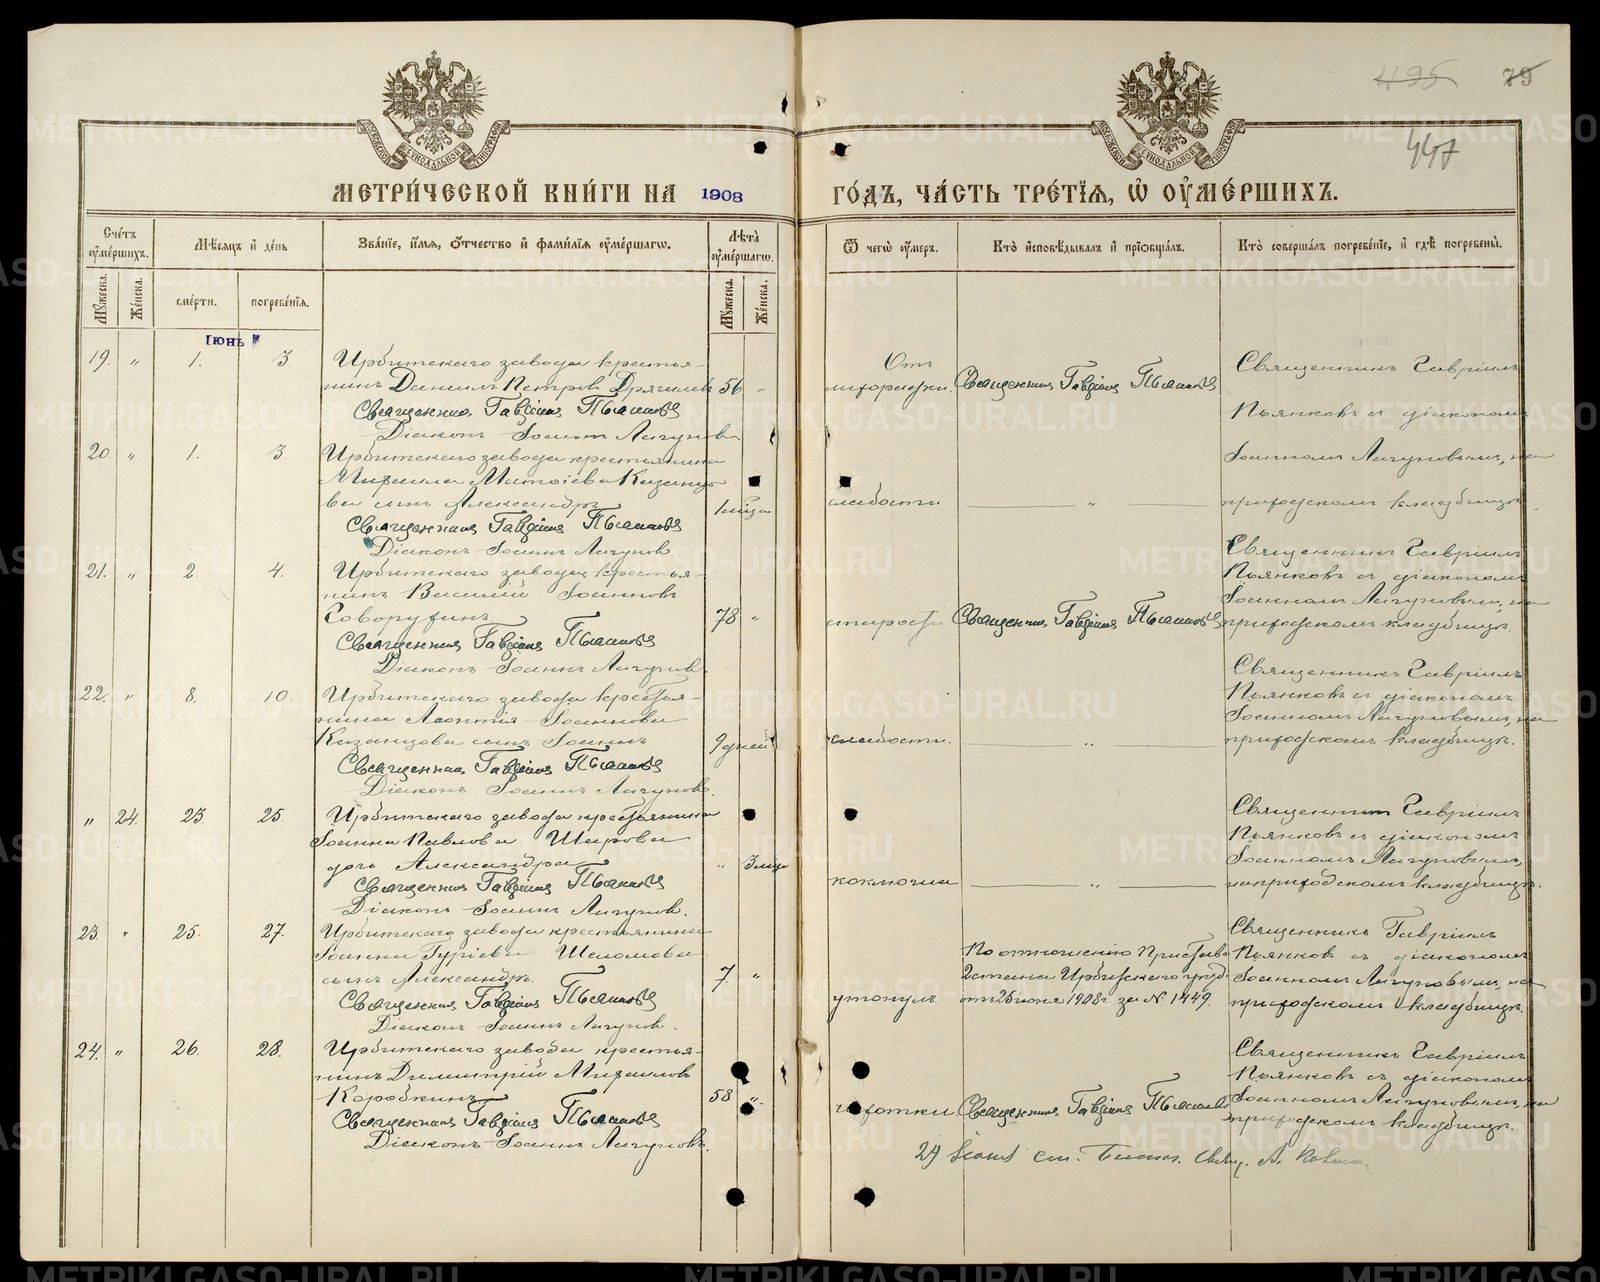 495 79
447
МОСКОВСКОЙ СУНОДАЛЬНОЙ ТИПОГРАФІИ
МОСКОВСКОЙ СУНОДАЛЬНОЙ ТИПОГРАФІИ
МЕТРИ́ЧЕСКОЙ КНИ́ГИ НА 1908 ГО́ДЪ, ЧА́СТЬ ТРЕ́ТІѦ, Ѽ ОУ҆МЕ́РШИХЪ.
Сче́тъ оу҆ме́ршихъ.
Мꙋ́жеска.
Же́нска.
Мѣ́сѧцъ и҆ де́нь
сме́рти.
погребе́нїѧ.
Зва́нїе, и҆́мѧ, ѻ҆́тчество и҆ фами́лїѧ оу҆ме́ршагѡ.
Лѣта̀ оу҆ме́ршагѡ.
Мꙋ́жеска.
Же́нска.
Ѿ чегѡ̀ оу҆́меръ.
Кто̀ и҆сповѣ́дывалъ и҆ прїѡбща́лъ.
Кто̀ соверша́лъ погребе́нїе, и҆ гдѣ̀ погребены̀.
Іюнь
19. " 1. 3.
Ирбитскаго завода крестья-
нинъ Даніилъ Петровъ Дрягилевъ 56 "
Священникъ Гавріилъ Пьянковъ
Діаконъ Іоаннъ Лагуновъ
Отъ
Священникъ Гавріилъ Пьянковъ
Священникъ Гавріилъ
Пьянковъ съ діакономъ
Іоанномъ Лагуновымъ, на
приходскомъ кладбищѣ.
20. " 1. 3.
Ирбитскаго завода крестьянина
Михаила Казанцо-
ва сынъ Александръ
Священникъ Гавріилъ Пьянковъ
Діаконъ Іоаннъ Лагуновъ
слабости "
21. " 2. 4.
Ирбитскаго завода крестья-
нинъ Василій Іоанновъ
Говорухинъ 78 "
Священникъ Гавріилъ Пьянковъ
Діаконъ Іоаннъ Лагуновъ
старости Священникъ Гавріилъ Пьянковъ
Священникъ Гавріилъ
Пьянковъ съ діакономъ
Іоанномъ Лагуновымъ, на
приходскомъ кладбищѣ.
22. " 8. 10.
Ирбитскаго завода крестья-
нина Леонтія Іоаннова
Казанцова сынъ Іоаннъ 9 дней
Священникъ Гавріилъ Пьянковъ
Діаконъ Іоаннъ Лагуновъ.
слабости. "
Священникъ Гавріилъ
Пьянковъ съ діакономъ
Іоанномъ Лагуновымъ, на
приходскомъ кладбищѣ.
" 24. 23 25.
Ирбитскаго завода крестьянина
Іоанна Павлова Шарова
дочь Александра " 3 м-ца
Священникъ Гавріилъ Пьянковъ
Діаконъ Іоаннъ Лагуновъ.
коклюша "
Священникъ Гавріилъ
Пьянковъ съ діакономъ
Іоанномъ Лагуновымъ,
на приходскомъ кладбищѣ.
23. " 25. 27.
Ирбитскаго завода крестьянина
Іоанна Гуріева Шеломова
сынъ Александръ. 7. "
Священникъ Гавріилъ Пьянковъ
Діаконъ Іоаннъ Лагуновъ.
утонулъ.
По отношенію Пристава
2 стана Ирбитскаго уѣзд.
отъ 26 іюня 1908 г. за № 1449.
Священникъ Гавріилъ
Пьянковъ съ діакономъ
Іоанномъ Лагуновымъ, на
приходскомъ кладбищѣ.
24. " 26. 28.
Ирбитскаго завода крестья-
нинъ Димитрій Михаиловъ
Коробкинъ 58 "
Священникъ Гавріилъ Пьянковъ
Діаконъ Іоаннъ Лагуновъ.
чахотки Священникъ Гавріилъ Пьянковъ
Священникъ Гавріилъ
Пьянковъ съ діакономъ
Іоанномъ Лагуновымъ, на
приходскомъ кладбищѣ.
METRIKI.GASO-URAL.RU